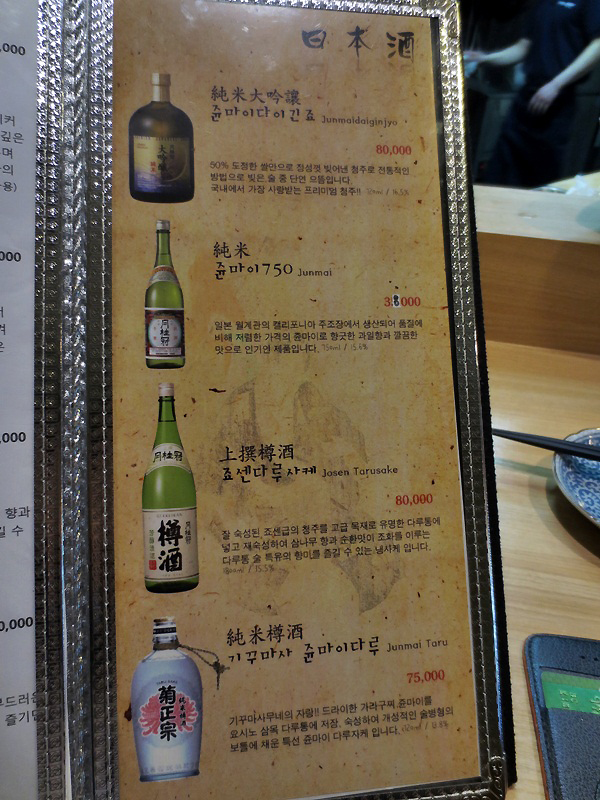 日本酒
純米大吟讓
쥰마이다이긴죠 Junmaidaiginjyo
80,000
50% 도정한 쌀만으로 정성껏 빚어낸 청주로 전통적인
방법으로 빚은 술 중 단연 으뜸입니다.
국내에서 가장 사랑받는 프리미엄 청주!!
大吟醸
純米
쥰마이750 Junmai
000
일본 월계관의 캘리포니아 주조장에서 생산되어 품질에
비해 저렴한 가격의 쥰마이로 향긋한 과일향과 깔끔한
맛으로 인기인 제품입니다. 750ml / 15.6%
月桂冠
上撰樽酒
죠센다루사케 Josen Tarusake
80,000
잘 숙성된 죠센급의 청주를 고급 목재로 유명한 다루통에
넣고 재숙성하여 삼나무 향과 순환맛이 조화를 이루는
다루통 술 특유의 향미를 즐길 수 있는 냉사케 입니다.
1800ml / 15.5%
月桂冠
樽酒
純米樽酒
기꾸마사 쥰마이다루 Junmai Taru
75,000
기꾸마사무네의 자랑!! 드라이한 가라구찌 쥰마이를
요시노 삼목 다루통에 저장, 숙성하여 개성적인 술병형의
보틀에 채운 특선 쥰마이 다루자케 입니다.
菊正宗
,000
000
,000
0,000
커
깊은
며
의
용)
은
향과
길 수
부드러운
즐기